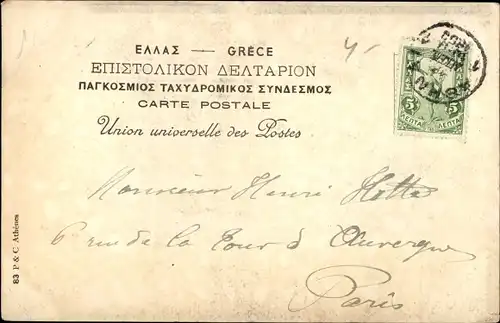 ΕΛΛΑΣ — GRÈCE
ΕΠΙΣΤΟΛΙΚΟΝ ΔΕΛΤΑΡΙΟΝ
ΠΑΓΚΟΣΜΙΟΣ ΤΑΧΥΔΡΟΜΙΚΟΣ ΣΥΝΔΕΣΜΟΣ
CARTE POSTALE
Union universelle des Postes
5 5
ΛΕΠΤΑ ΛΕΠΤΑ
Monsieur Henri
6 rue de la Tour d'Auvergne
Paris
83 P. & C. Athènes